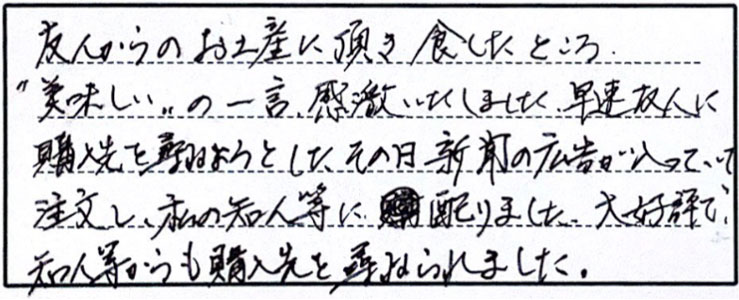 友人からのお土産に頂き食したところ、
"美味しい"の一言、感激いたしました。早速友人に
購入先を尋ねようとした、その日新聞の広告が入っていて
注文し、私の知人等に配りました。大好評で、
知人等からも購入先を尋ねられました。